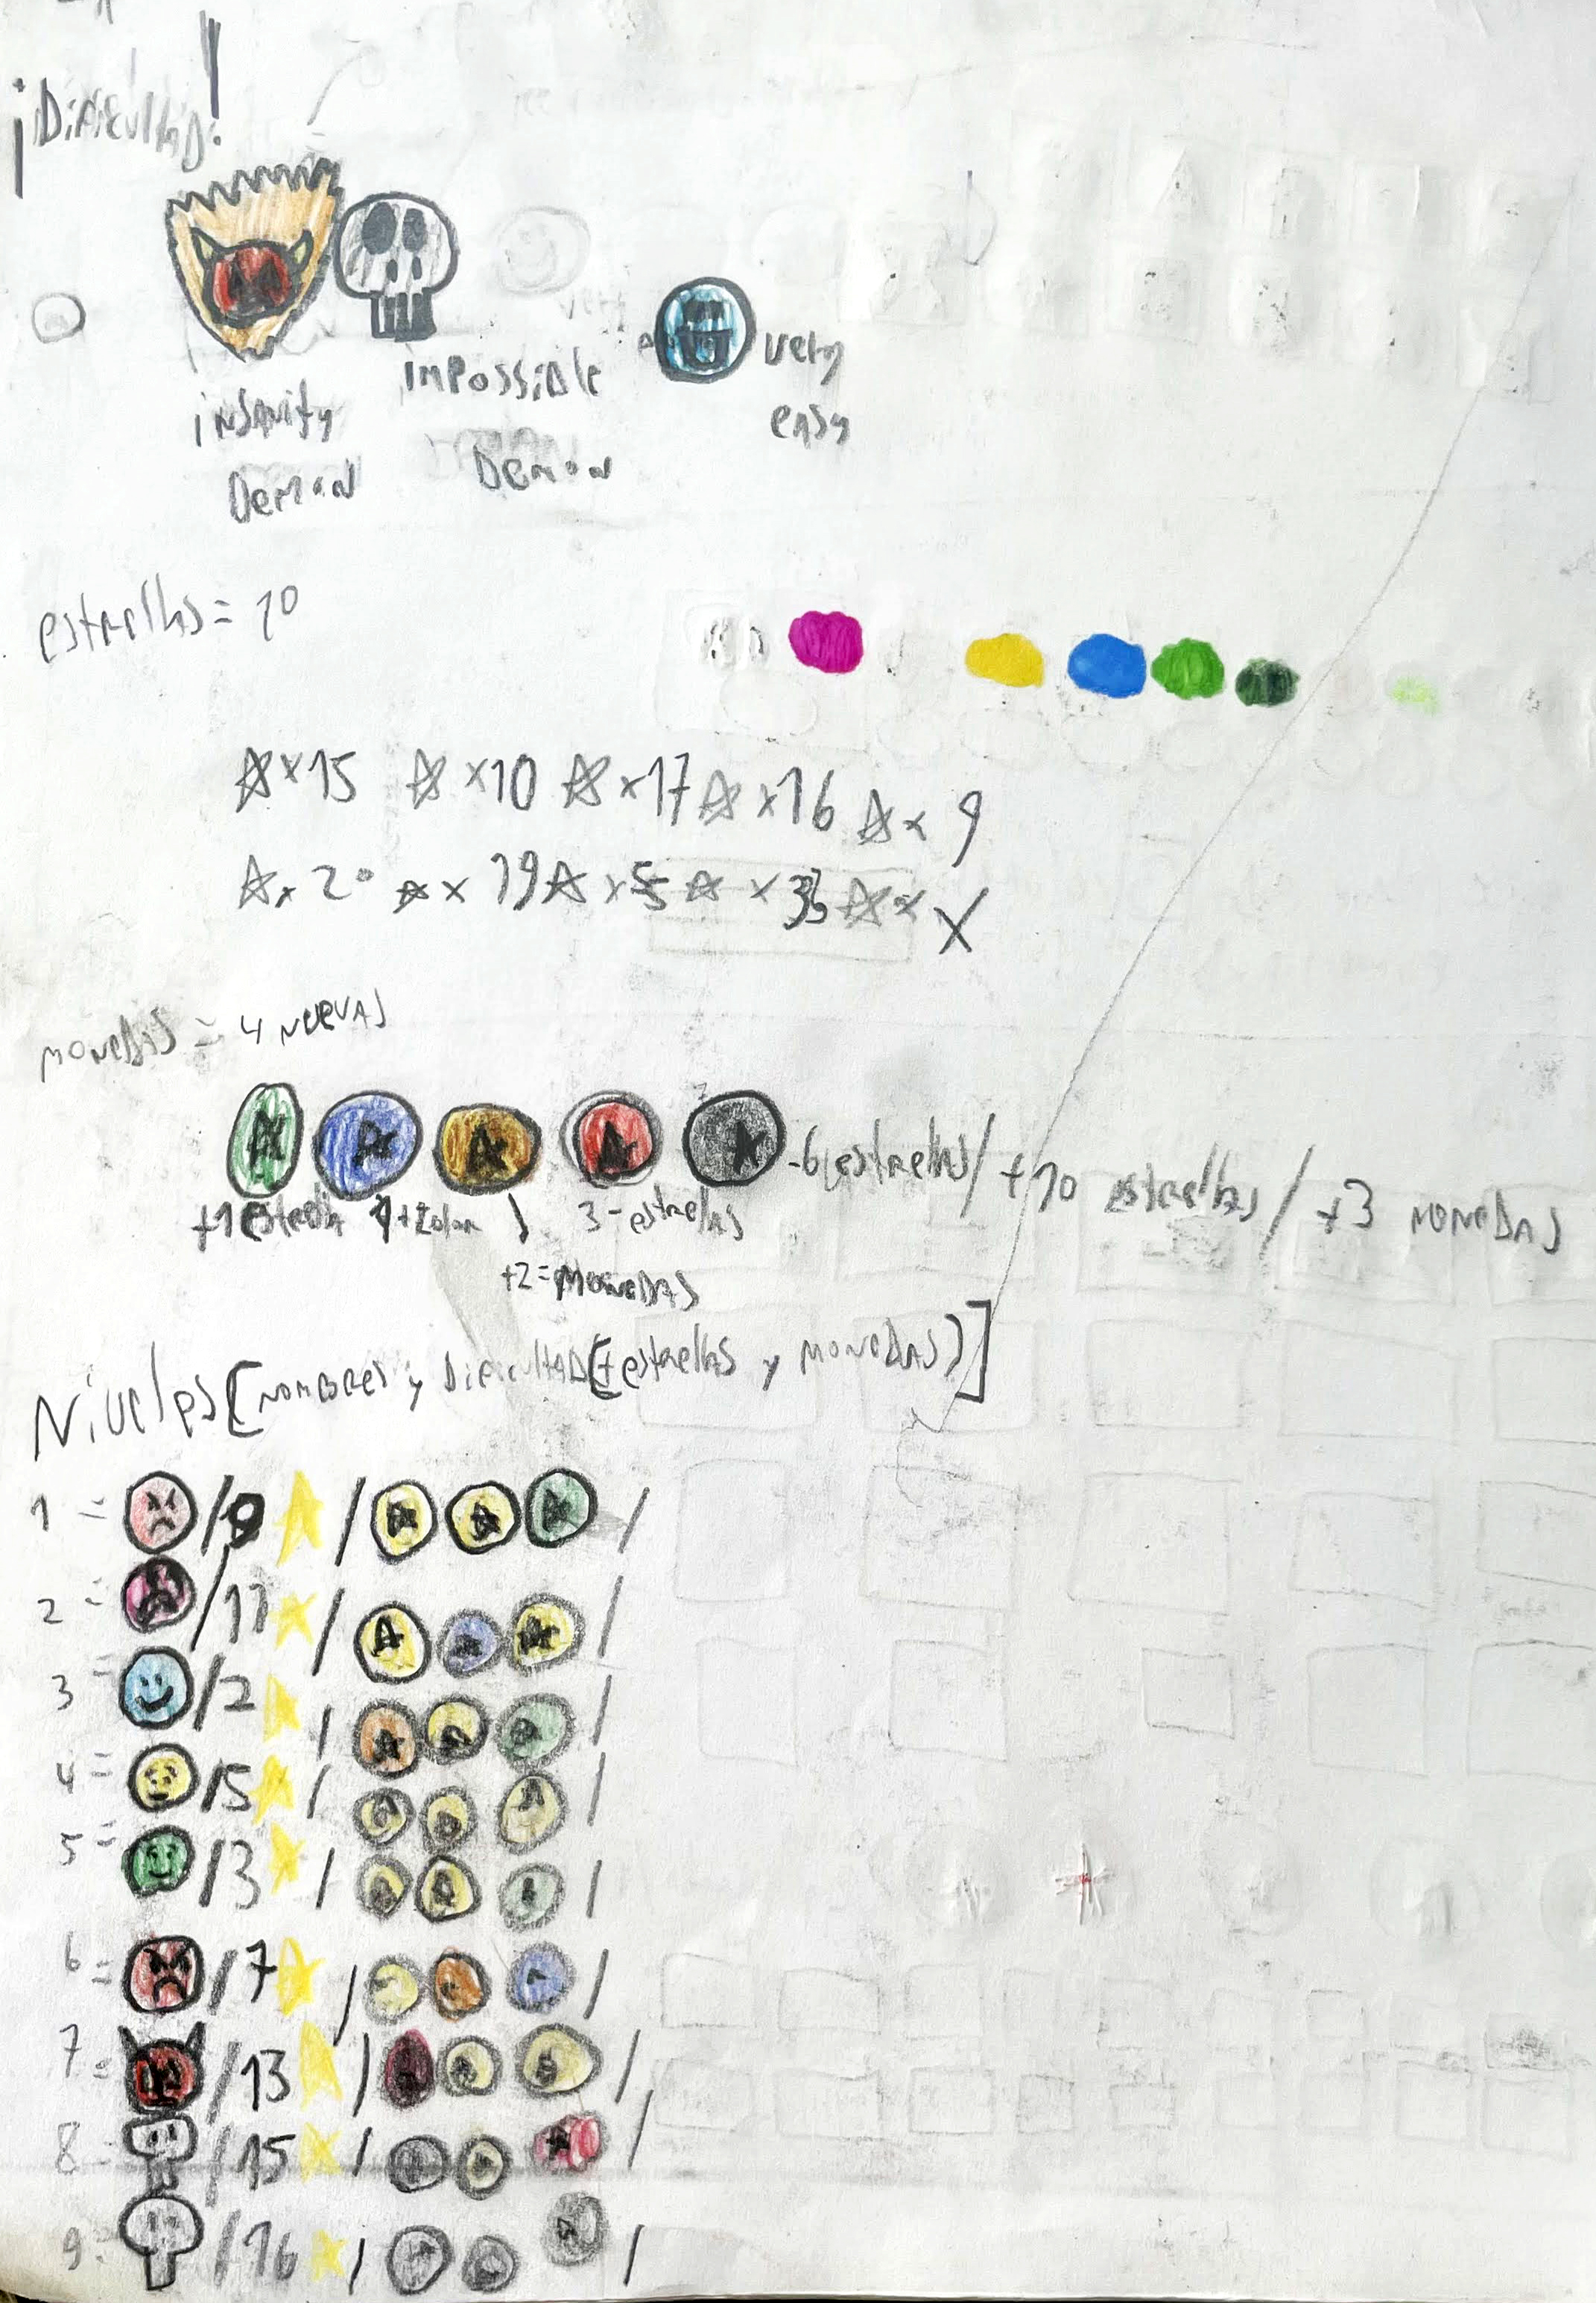 ¡Dificultad!
insanity
Demon
impossible
Demon
very
easy
estrellas = 10
x15 x10 x17 x16 x 9
x 20 x 19 x 5 x x X
monedas = 4 nuevas
+1 estrella +1 color 3 - estrellas -6 estrellas / +10 estrellas / +3 monedas
+2 = monedas
Niveles [nombres y dificultad [+ estrellas y monedas)]
1 = /9 / /
2 = /11 / /
3 = /2 / /
4 = /5 / /
5 = /3 / /
6 = /7 / /
7 = /13 / /
8 = /15 / /
9 = /16 / /